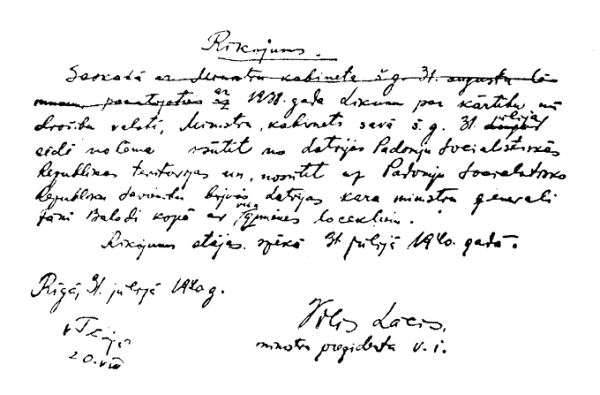 Rīkojums.
Saskaņā ar Ministru kabineta š.g. 31. augusta lē
mumu, pamatojoties uz 1938. gada Likumu par kārtību un
drošību valstī, Ministru kabinets savā š.g. 31. jūlija
sēdē nolēma izsūtīt no Latvijas Padomju Socialistiskās
Republikas teritorijas un nosūtīt uz Padomju Socialistisko
Republiku Savienību bijušo Latvijas kara ministru ģenerali
Jāni Balodi kopā ar viņa ģimenes locekļiem.
Rīkojums stājas spēkā 31 jūlijā 1940. gadā.
Rīgā, 31. jūlijā 1940 g.
Vilis Lācis,
ministru prezidenta v. i.
20. VIII